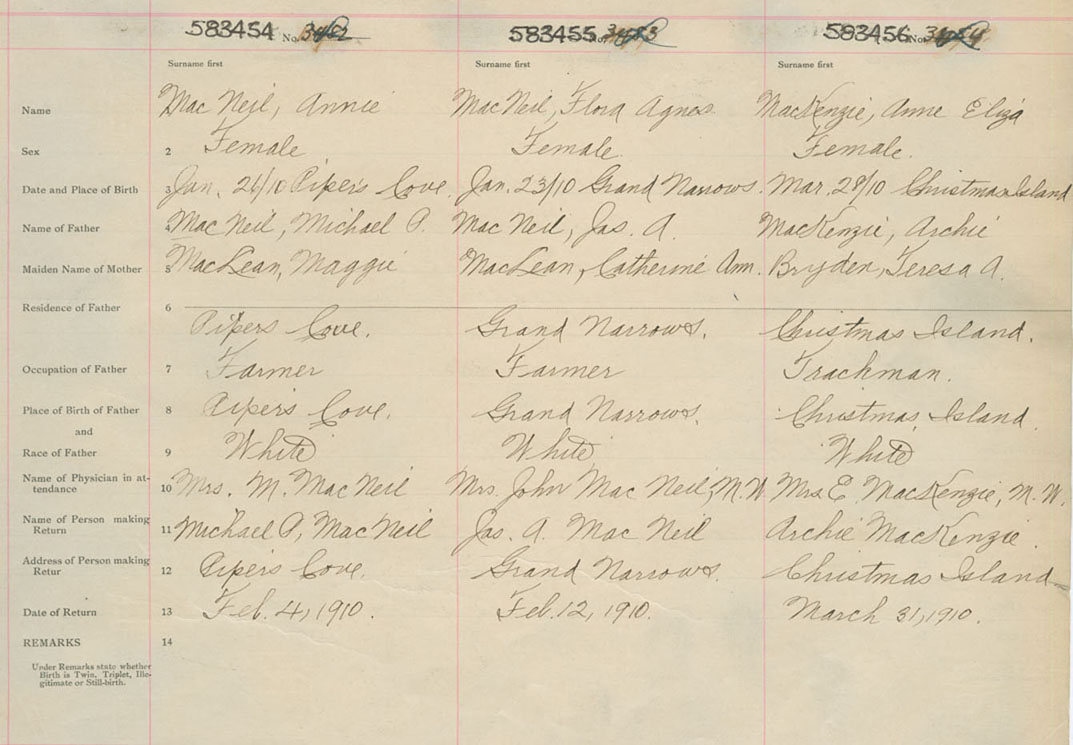 583454 No. 3482 583455 No. 3483 583456 No. 3484
Surname first Surname first Surname first
Name Mac Neil, Annie MacNeil, Flora Agnes MacKenzie, Anne Eliza
Sex 2 Female Female. Female.
Date and Place of Birth 3 Jan. 26/10 Pipers Cove. Jan. 23/10 Grand Narrows. Mar. 28/10 Christmas Island
Name of Father 4 MacNeil, Michael P. Mac Neil, Jas. A. MacKenzie, Archie
Maiden Name of Mother 5 MacLean, Maggie MacLean, Catherine Ann. Bryden, Teresa A.
Residence of Father 6
Pipers Cove. Grand Narrows. Christmas Island.
Occupation of Father 7 Farmer Farmer Trachman.
Place of Birth of Father 8 Pipers Cove. Grand Narrows. Christmas Island.
and
Race of Father 9 White White White
Name of Physician in at-
tendance 10 Mrs. M. MacNeil Mrs. John Mac Neil, M.W. Mrs. E. MacKenzie, M.W.
Name of Person making
Return 11 Michael P. MacNeil Jas. A. Mac Neil Archie MacKenzie.
Address of Person making
Retur 12 Pipers Cove. Grand Narrows. Christmas Island
Date of Return 13 Feb. 4, 1910. Feb. 12, 1910. March 31, 1910.
REMARKS 14
Under Remarks state whether
Birth is Twin, Triplet, Ille-
gitimate or Still-birth.